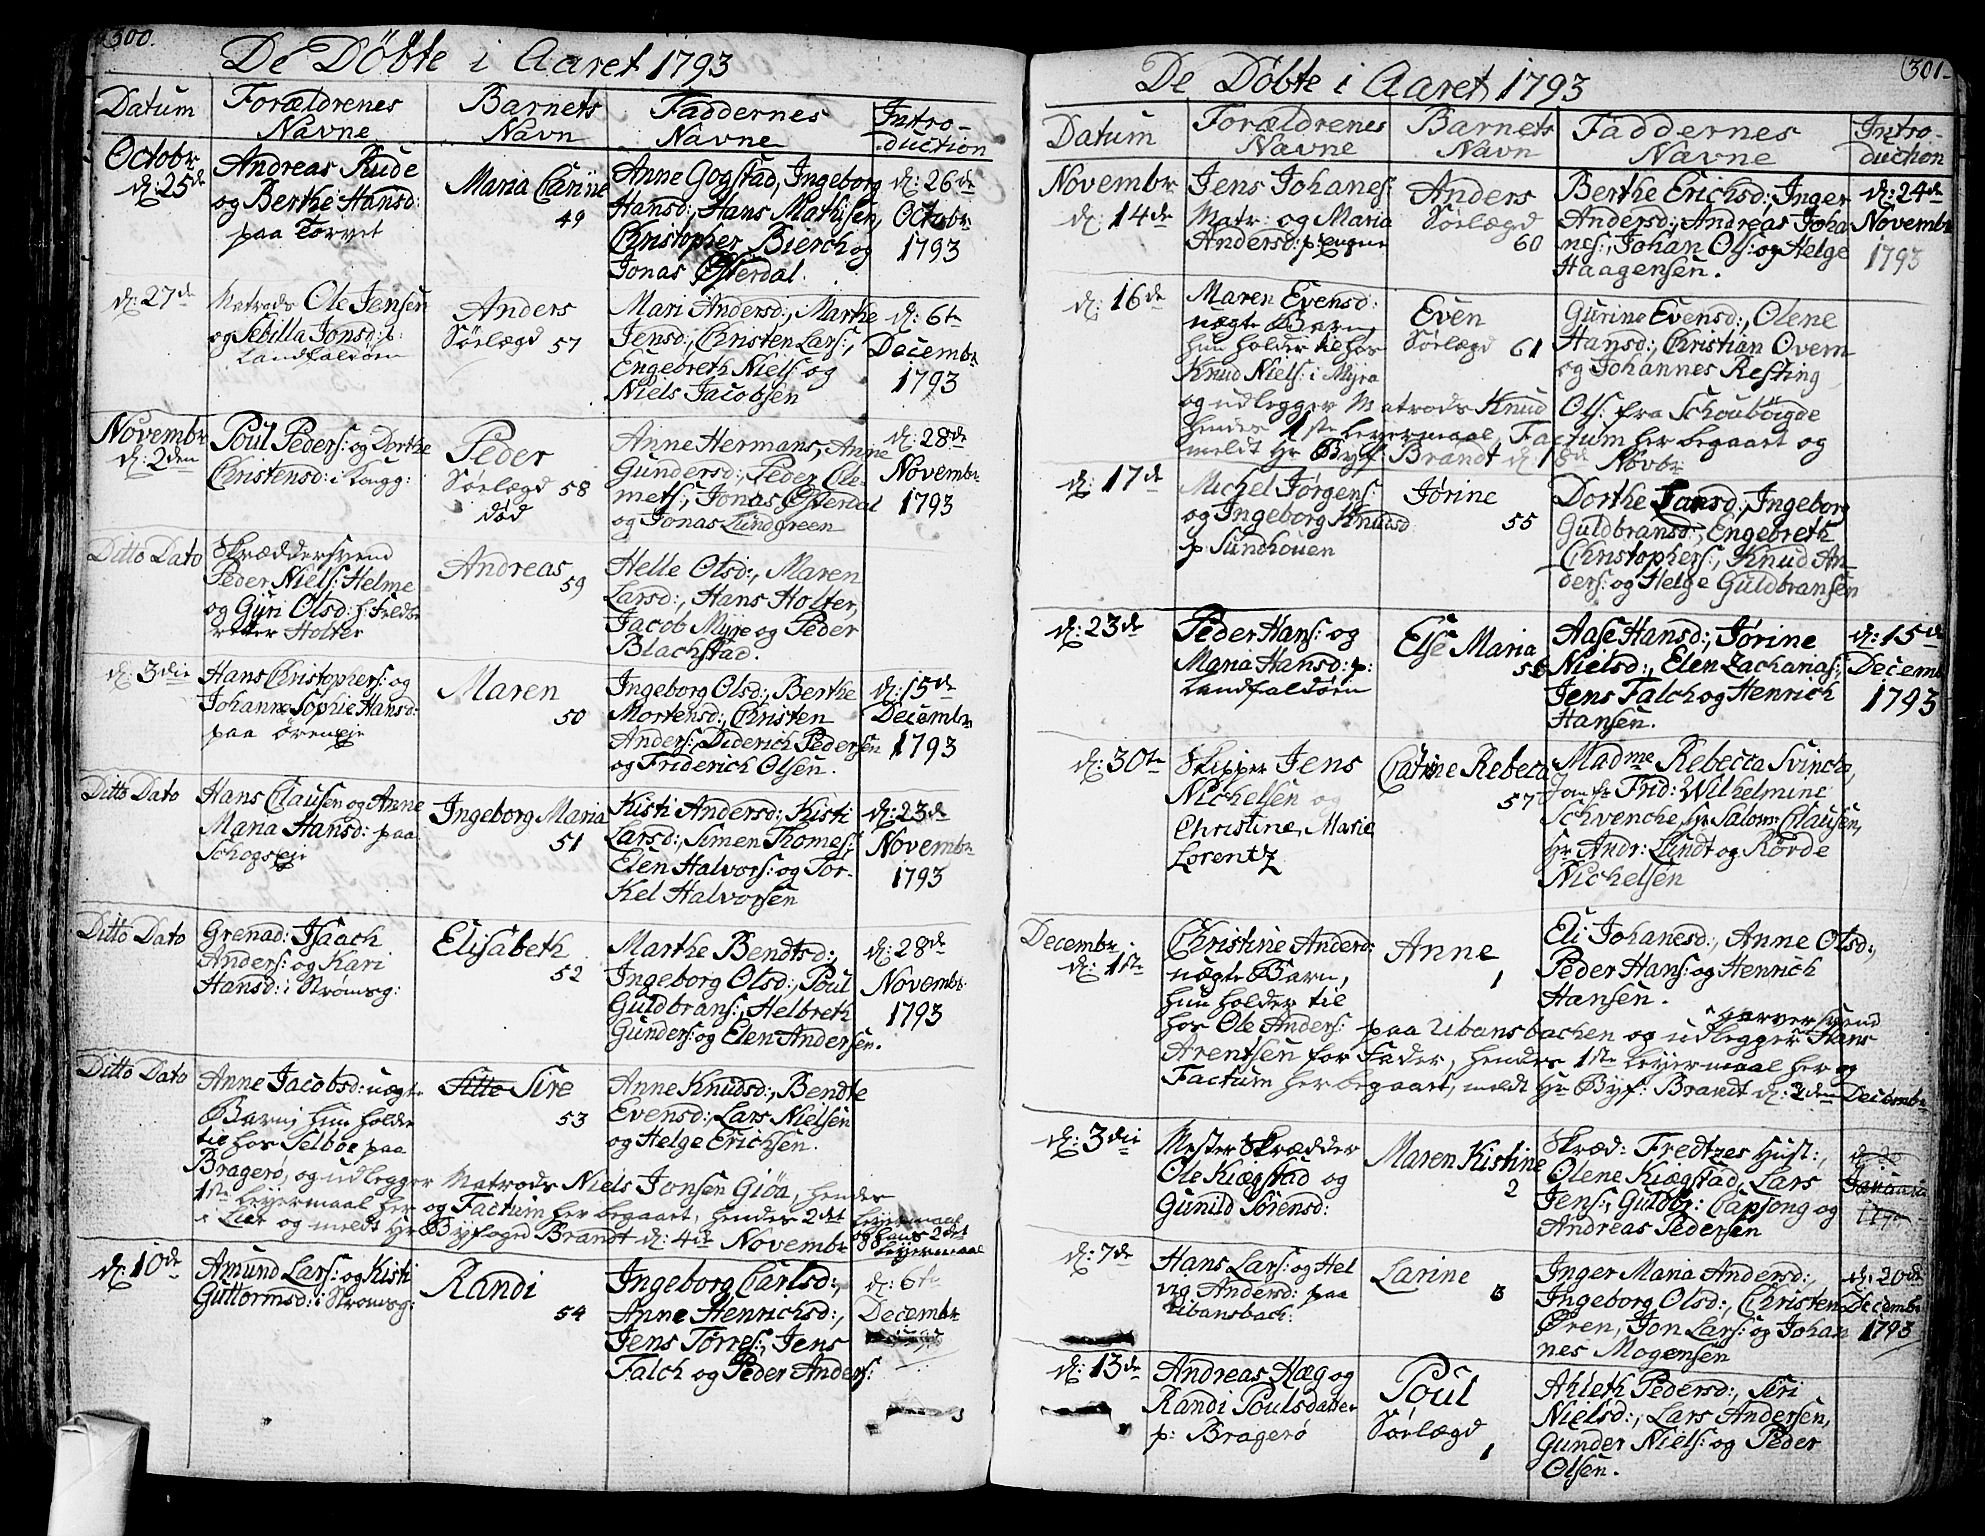 300.
De Döbte i Aaret 1793
Datum
Forældrenes
Navne
Barnets
Navn
Faddernes
Navne
Intro-
duction
Octobr
d: 25de
Andreas Rude
og Berthe Hansd:
paa Torvet
Maria Carine
49
Anne Gogstad, Ingeborg
Hansd:, Hans Mathisen,
Christopher Bierch og
Jonas Østerdal.
d: 26de
Octobr
1793
d: 27de
Matrods Ole Jensen
og Sebilla Jonsd: p:
Landfaldøen
Anders
Söelægd 57
Mari Andersd:, Marthe
Jensd:, Christen Lars:,
Engebreth Niels: og
Niels Jacobsen
d: 6te
Decembr
1793
Novembr
d: 2den
Poul Peders: og Dorthe
Christensd: i Tangg:
Peder
Söelægd 58
död
Anne Hermans, Anne
Gundersd:, Peder Cle-
mets:, Jonas Østerdal
og Jonas Lundgreen
d: 28de
Novembr
1793
Ditto Dato
Skræddersvend
Peder Niels: Helme
og Gyri Olsd: h: Fredts
retter Holter
Andreas
59
Helle Olsd:, Maren
Larsd:, Hans Holter,
Jacob Myre og Peder
Blachstad.
d: 3die
Hans Christophers: og
Johanne Sophie Hansd:
paa Øreneje
Maren
50
Ingeborg Olsd:, Berthe
Mortensd:, Christen
Anders:, Diderich Pedersen
og Friderich Olsen.
d: 15de
Decembr
1793
Ditto Dato
Hans Clausen og Anne
Maria Hansd: paa
Schogseje
Ingeborg Maria
51
Kisti Andersd:, Kisti
Larsd:, Simen Thomes:,
Elen Halvors: og Tor-
kel Halvorsen
d: 23de
Novembr
1793
Ditto Dato
Grenad: Isaach
Anders: og Kari
Hansd: i Strömsg:
Elisabeth
52
Marthe Bendtsd:,
Ingeborg Olsd:, Poul
Guldbrans:, Helbreth
Gunders: og Elen Andersen.
d: 28de
Novembr
1793
Ditto Dato
Anne Jacobsd: uægte
Barn, hun holder
til hos Selboe paa
Siri
53
Anne Knudsd:, Bendte
Evensd:, Lars Nielsen
og Helge Erichsen.
Bragerö, og udlegger Matrods Niels Jonsen Giöa, hendes
1ste Leyermaal her og Factum her begaaet, hendes 2det Leyermaal
i Lier og meldt Hr Byfoged Brandt d: 4de Novembr og hans 2det
Leyermaal
d: 10de
Amund Lars: og Kisti
Guttormsd: i Strömsg:
Randi
54
Ingeborg Carlsd:,
Anne Henrichsd:,
Jens Torres:, Jens
Falch og Peder Anders:
d: 6te
Decembr
301.
De Döbte i Aaret 1793
Datum
Forældrenes
Navne
Barnets
Navn
Faddernes
Navne
Intro-
duction
Novembr
d: 14de
Jens Johanes:
Matr: og Maria
Andersd: p: Engene
Anders
Söelægd
60
Berthe Erichsd:, Inger
Andersd:, Andreas Joha
nes:, Johan Ols: og Helge
Haagensen.
d: 24de
Novembr
1793
d: 16de
Maren Evensd:
uægte Barn,
hun holder til hos
Knud Niels: i Myra
Even
Söelægd 61
Gurine Evensd:, Olene
Hansd:, Christian Ovem
og Johannes Resting
og udlegger Matrods Knud Ols: fra Schoubörgde
hendes 1ste Leyermaal, Factum her begaaet og
meldt Hr Byf: Brandt d: 18de Novbr
d: 17de
Michel Jörgens:
og Ingeborg Knudsd
p: Sundhouen
Jörine
55
Dorthe Larsd:, Ingeborg
Guldbransd:, Engebreth
Christophers:, Knud An-
ders: og Helge Guldbransen
d: 23de
Peder Hans: og
Maria Hansd: p:
Landfaldøen
Else Maria
56
Aase Hansd:, Jörine
Nielsd:, Elen Zacharias:,
Jens Falch og Henrich
Hansen.
d: 15de
Decemb
1793
d: 30te
Skipper Jens
Nichelsen og
Christine Marie
Lorentz
Catrine Rebeca
57
Madme Rebecca Svincke,
Jomfr Frid: Wilhelmine
Schvencke, Hr Salom: Clausen,
Hr Andr: Lundt og Rörde
Nichelsen
Decembr
d: 1ste
Christine Andersd:
uægte Barn,
hun holder til
Anne
1
Eli Johanesd:, Anne Olsd:,
Peder Hans: og Henrich
Hansen.
hos Ole Anders: paa Ubansbachen og udlegger garversvend Hans
Arentsen for Fader, hendes 1ste Leyermaal her og
Factum her begaaet, meldt Hr Byf: Brandt d: 2den Decembr
d: 3die
Mester Skrædder
Ole Kiøgstad og
Gunild Sörensd:
Maren Kistine
2
Skræd: Fredtzes Hust:,
Olene Kiøgstad, Lars
Jens:, Guldbr: Capsong og
Andreas Pedersen
Januarii
d: 7de
Hans Lars: og Hel
vig Andersd: paa
Ubansbach:
Larine
3
Inger Maria Andersd:,
Ingeborg Olsd:, Christen
Ören, Jon Lars: og Johan
nes Mogensen
d: 20de
Decembr
1793
d: 13de
Andreas Hæg og
Randi Poulsdatter
p: Bragerö
Poul
Söelægd
1
Ahleth Pedersd:, Siri
Nielsd:, Lars Andersen,
Gunder Niels: og Peder
Olsen.